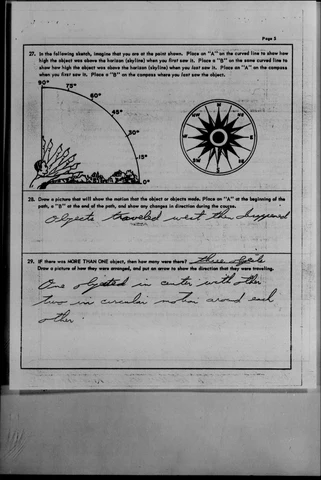 Page 3
27. In the following sketch, imagine that you are at the point shown. Place an "A" on the curved line to show how
high the object was above the horizon (skyline) when you first saw it. Place a "B" on the same curved line to
show how high the object was above the horizon (skyline) when you last saw it. Place an "A" on the compass
when you first saw it. Place a "B" on the compass where you last saw the object.
90° 75°
60°
45°
30°
15°
0°
N
NE
E
SE
S
SW
W
NW
28. Draw a picture that will show the motion that the object or objects made. Place an "A" at the beginning of the
path, a "B" at the end of the path, and show any changes in direction during the course.
Objects traveled west then
29. IF there was MORE THAN ONE object, then how many were there? three
Draw a picture of how they were arranged, and put an arrow to show the direction that they were traveling.
One objected in center with other
two in circular motion around each
other